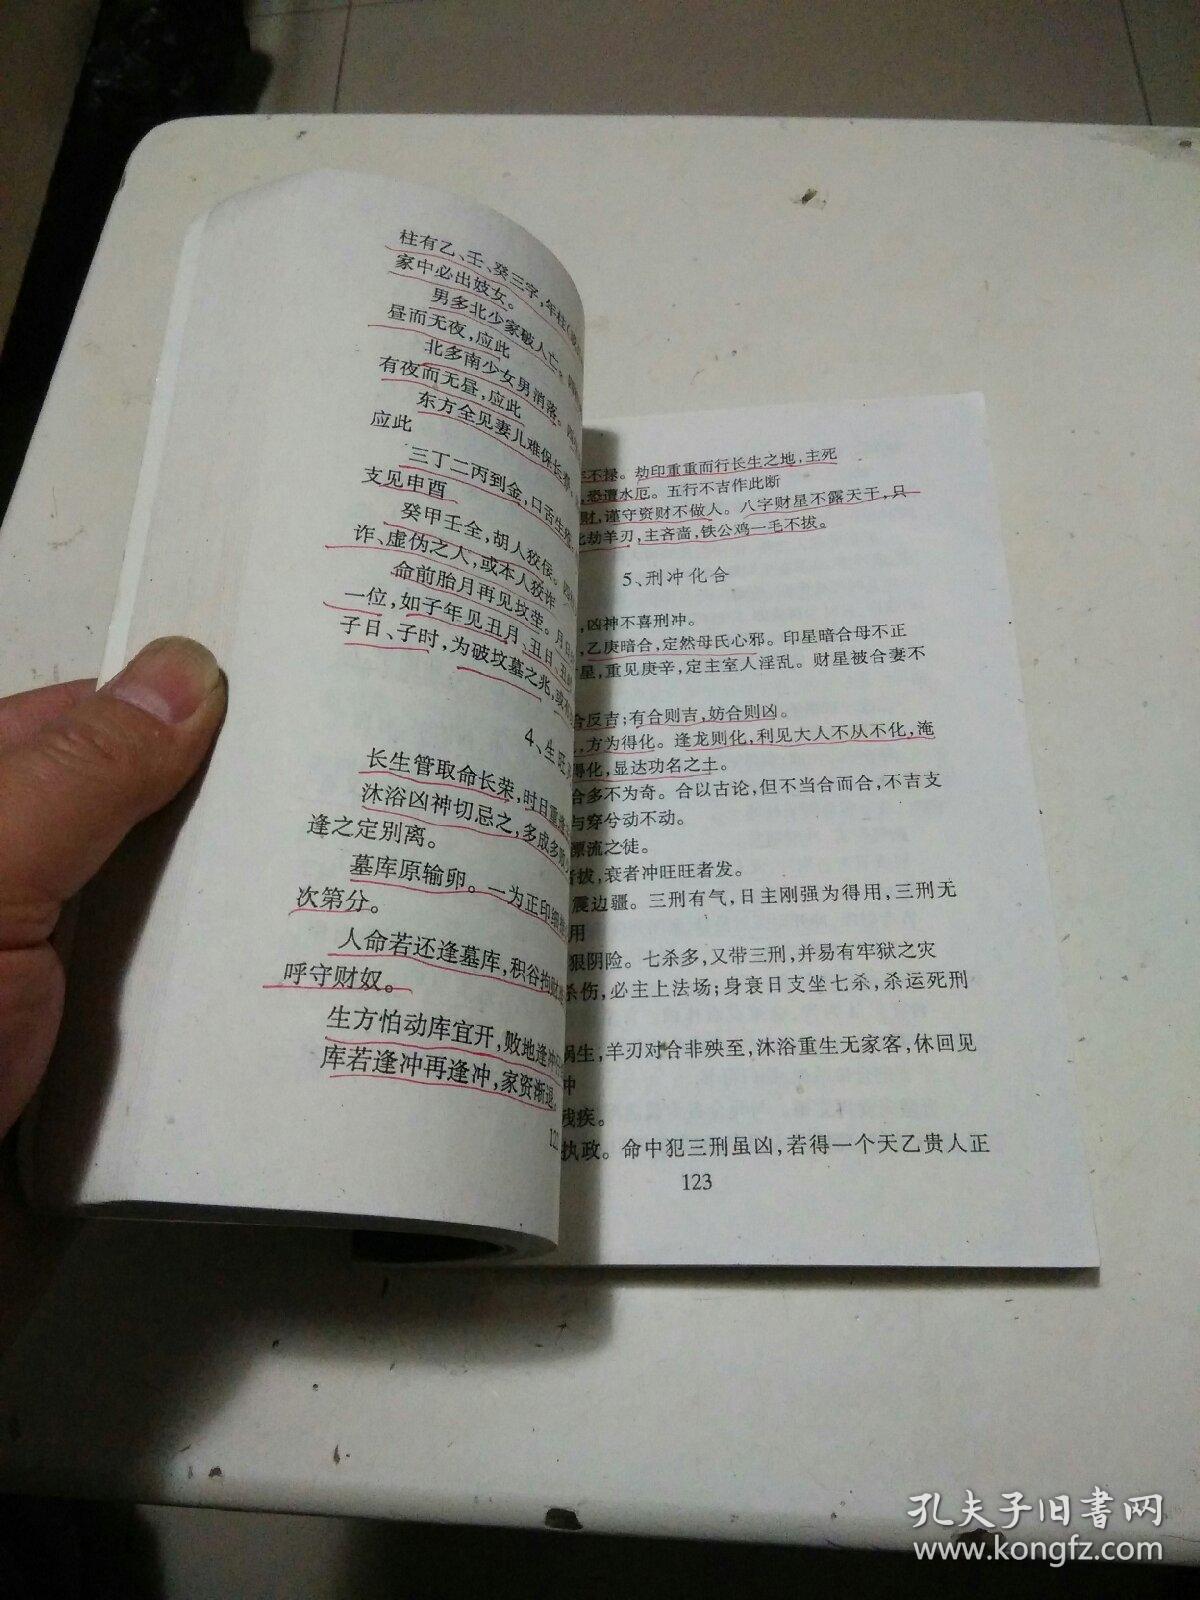 柱有乙、壬、癸三字，年柱(
家中必出妓女。
男多北少家破人亡。
昼而无夜，应此
北多南少女男消落。
有夜而无昼，应此
东方全见妻儿难保长寿，
应此
三丁二丙到金，口舌生
支见申酉
癸甲壬全，胡人狡佞。
诈、虚伪之人，或本人狡诈
命前胎月再见坟茔。月
一位，如子年见丑月、丑日、丑
子日、子时，为破坟墓之兆，或
4、生旺
长生管取命长荣，时日重逢
沐浴凶神切忌之，多成多败
逢之定别离。
墓库原输卵。一为正印细
次第分。
人命若还逢墓库，积谷拘财
呼守财奴。
生方怕动库宜开，败地逢冲
库若逢冲再逢冲，家资渐退。
12
不禄。劫印重重而行长生之地，主死
，恐遭水厄。五行不吉作此断
财，谨守资财不做人。八字财星不露天干，只
比劫羊刃，主吝啬，铁公鸡一毛不拔。
5、刑冲化合
，凶神不喜刑冲。
，乙庚暗合，定然母氏心邪。印星暗合母不正
星，重见庚辛，定主室人淫乱。财星被合妻不
合反吉；有合则吉，妨合则凶。
，方为得化。逢龙则化，利见大人不从不化，淹
得化，显达功名之士。
合多不为奇。合以古论，但不当合而合，不吉支
与穿兮动不动。
漂流之徒。
者拔，衰者冲旺旺者发。
震边疆。三刑有气，日主刚强为得用，三刑无
用
狠阴险。七杀多，又带三刑，并易有牢狱之灾
杀伤，必主上法场；身衰日支坐七杀，杀运死刑
祸生，羊刃对合非殃至，沐浴重生无家客，休回见
冲
残疾。
执政。命中犯三刑虽凶，若得一个天乙贵人正
123
孔夫子旧书网
www.kongfz.com